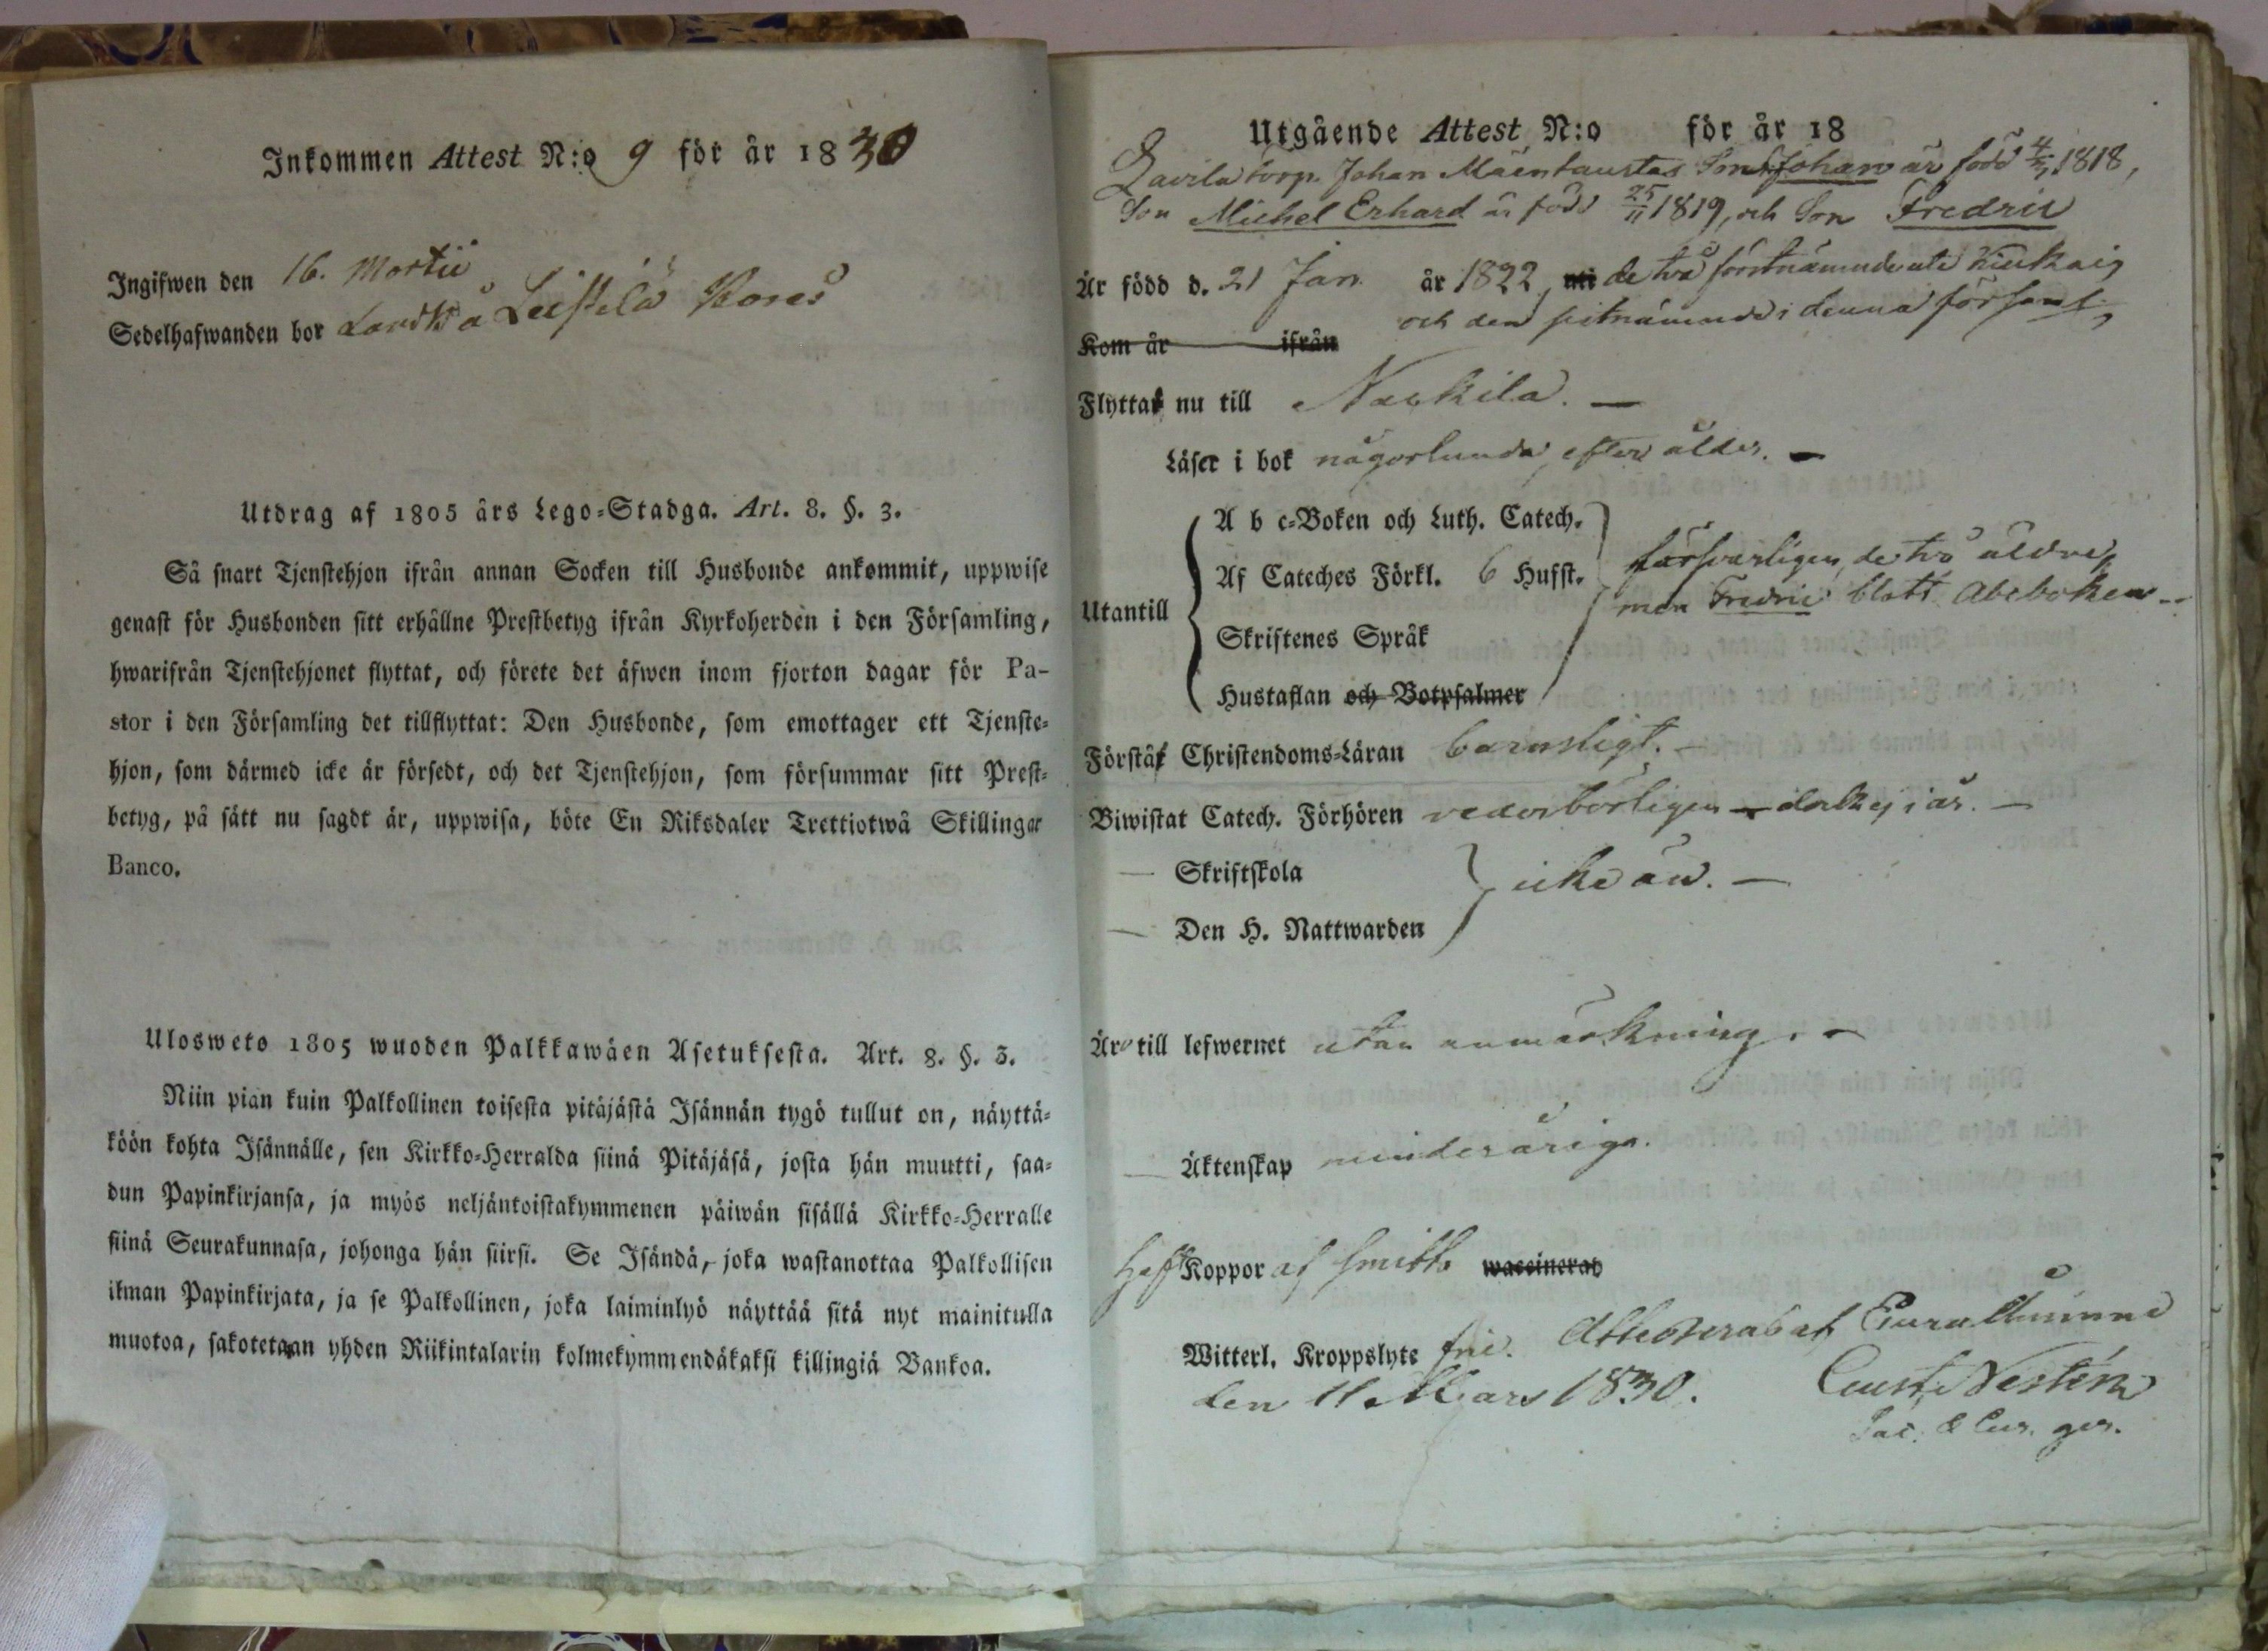 Inkommen Attest N:o 9 för år 1830
Ingifwen den 16. Martii
Sedelhafwanden bor Landb: å Leistilä
Utdrag af 1805 års Lego-Stadga. Art. 8. §. 3.
Så snart Tjenstehjon ifrån annan Socken till Husbonde ankommit, uppwise
genast för Husbonden sitt erhållne Prestbetyg ifrån Kyrkoherden i den Församling,
hwarifrån Tjenstehjonet flyttat, och förete det äfwen inom fjorton dagar för Pa-
stor i den Församling det tillflyttat: Den Husbonde, som emottager ett Tjenste-
hjon, som därmed icke är försedt, och det Tjenstehjon, som försummar sitt Prest-
betyg, på sätt nu sagdt är, uppwisa, böte En Riksdaler Trettiotwå Skillingar
Banco.
Ulosweto 1805 wuoden Palkkawäen Asetuksesta. Art. 8. §. 3.
Niin pian kuin Palkollinen toisesta pitäjästä Isännän tygö tullut on, näyttä-
köön kohta Isännälle, sen Kirkko-Herralda siinä Pitäjäsä, josta hän muutti, saa-
dun Papinkirjansa, ja myös neljäntoistakymmenen päiwän sisällä Kirkko-Herralle
siinä Seurakunnasa, johonga hän siirsi. Se Isändä, joka wastanottaa Palkollisen
ilman Papinkirjata, ja se Palkollinen, joka laiminlyö näyttää sitä nyt mainitulla
muotoa, sakotetaan yhden Riikintalarin kolmekymmendäkaksi killingiä Bankoa.
Utgående Attest N:o för år 18
Lavila torp. Johan Mäentaustas Son Johan är född 4/7 1818,
Son Michel Erhard är född 25/11 1819, och Son Fredric
Är född d. 21 Jan. år 1822, uti de två förstnämnde uti Kiukais
och den sistnämnde i denna församl.
Kom år ifrån
Flyttar nu till Nackila. —
Läser i bok någorlunda, efter ålder. —
A b c-Boken och Luth. Catech.
Af Cateches Förkl. 6 Hufst. försvarligen, de två äldre,
Utantill men Fredric blott Abcboken —
Skriftenes Språk
Hustaflan och Botpsalmer
Förstår Christendoms-Läran barnsligt. —
Biwistat Catech. Förhören vederbörligen — dock ej i år. —
— Skriftskola
icke än. —
— Den H. Nattwarden
Äro till lefwernet utan anmärkning. —
— Äktenskap minderåriga.
Haft Koppor af smitta waccinerad
Witterl. Kroppslyte fri. Attesterad af Eura Kuninne
den 11 Mars 1830. Gust. Nestén
Sac. &